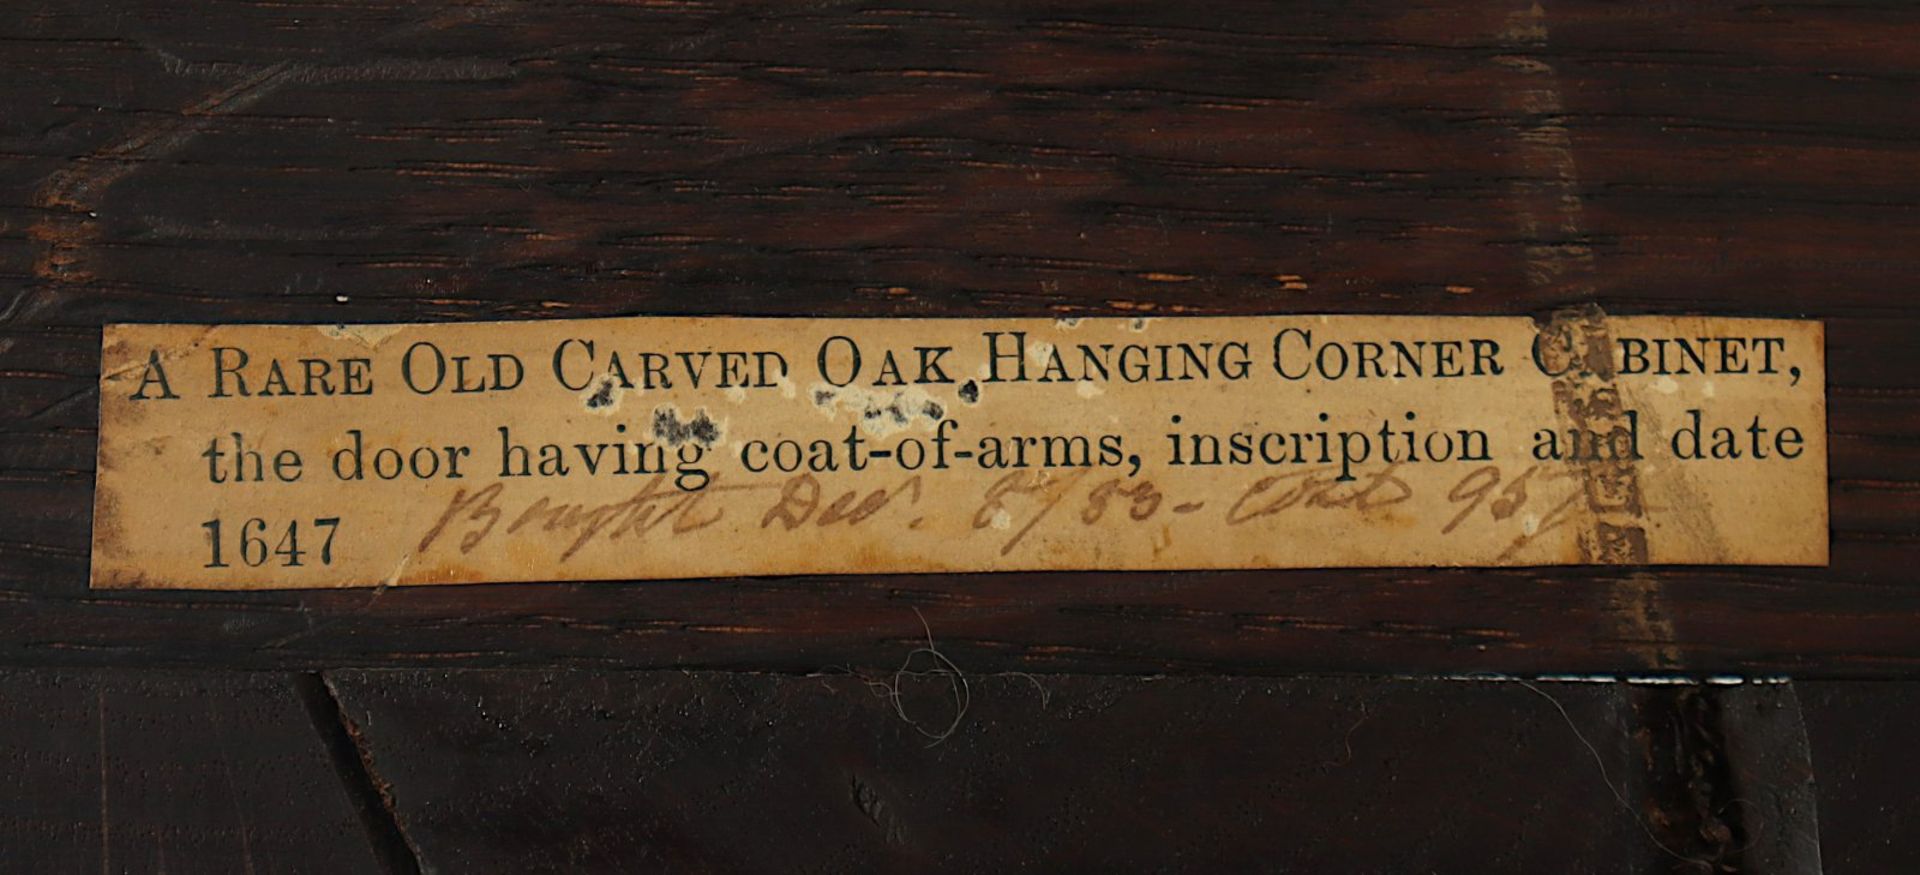 A RARE OLD CARVED OAK HANGING CORNER CABINET,
the door having coat-of-arms, inscription and date
1647 Bought Decr. 8/83 - cost